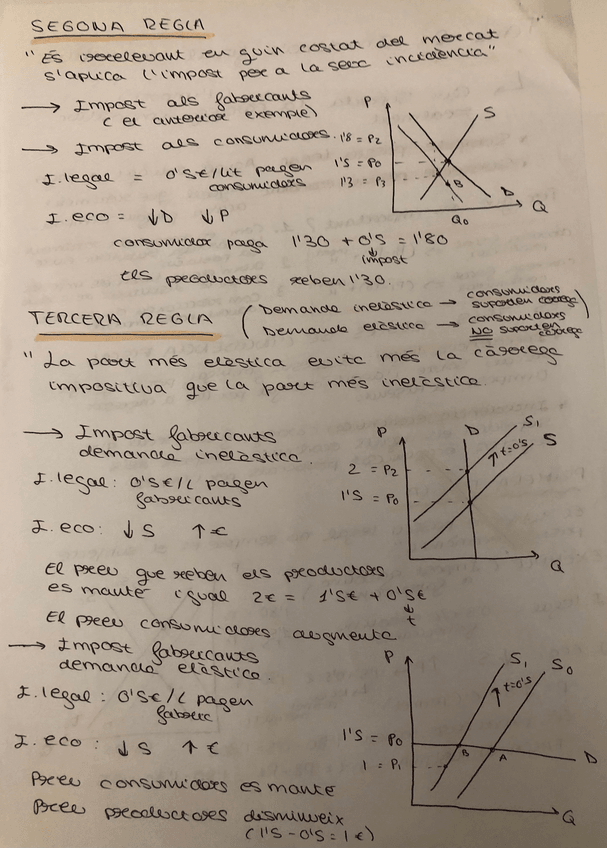 SEGONA REGLA
"És irrelevant en quin costat del mercat
s'aplica l'impost per a la seva incidència"
→ Impost als fabricants
( el anterior exemple)
→ Impost als consumidors.
I. legal = 0'5€/lit paguen
consumidors
I. eco = ↓D ↓P
consumidor paga 1'30 + 0'5 = 1'80
↓
impost
Els productors reben 1'30.
P
S
1'8 = P2
1'5 = P0
1'3 = P3
B
D
Q0
Q
TERCERA REGLA
( Demanda inelàstica → consumidors
suporten càrrega
Demanda elàstica → consumidors
NO suporten
càrrega )
" La part més elàstica evita més la càrrega
impositiva que la part més inelàstica.
→ Impost fabricants
demanda inelàstica.
I. legal: 0'5€/L paguen
fabricants
I. eco: ↓S ↑€
El preu que reben els productors
es manté igual 2€ = 1'5€ + 0'5€
↓
t
El preu consumidors augmenta
P
D
S1
S
↑t=0'5
2 = P2
1'5 = P0
Q
→ Impost fabricants
demanda elàstica.
I. legal: 0'5€/L paguen
fabric
I. eco: ↓S ↑€
Preu consumidors es manté
Preu productors disminueix
(1'5 - 0'5 = 1€)
P
S1
S0
↑t=0'5
1'5 = P0
1 = P1
B
A
D
Q